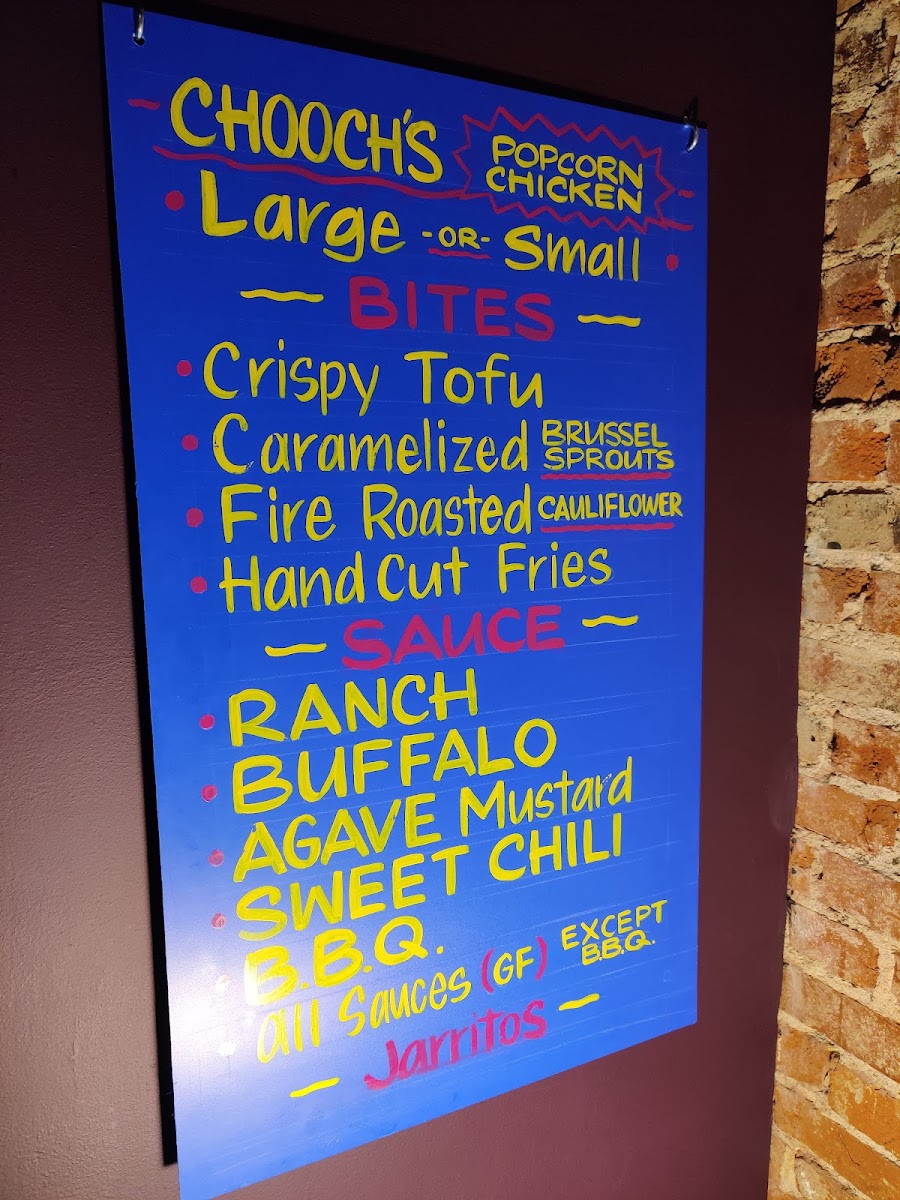 CHOOCH'S POPCORN CHICKEN
Large -OR- Small
BITES
Crispy Tofu
Caramelized BRUSSEL SPROUTS
Fire Roasted CAULIFLOWER
Hand Cut Fries
SAUCE
RANCH
BUFFALO
AGAVE Mustard
SWEET CHILI
B.B.Q.
all Sauces (GF) EXCEPT B.B.Q.
Jarritos